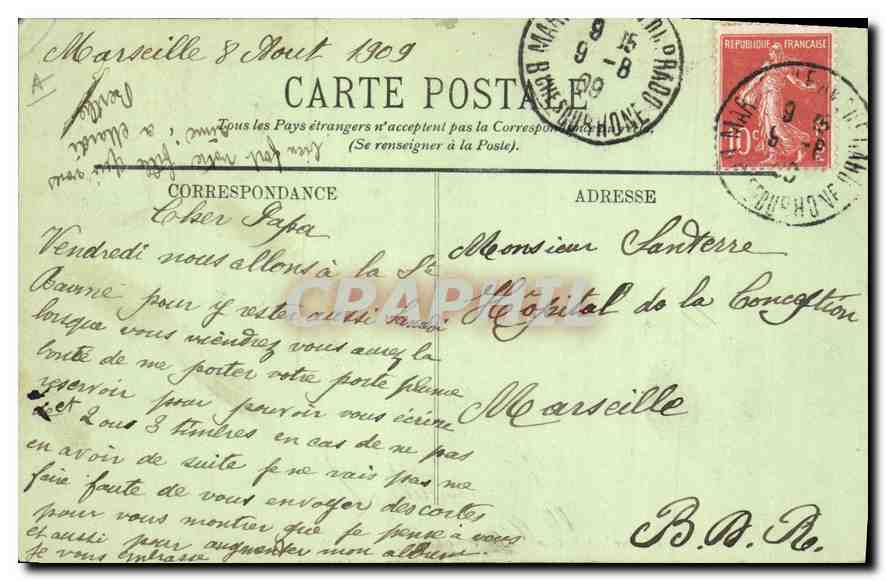 Marseille 8 Aout 1909
CARTE POSTALE
Tous les Pays étrangers n'acceptent pas la Correspondance
(Se renseigner à la Poste).
REPUBLIQUE FRANÇAISE
10c
CORRESPONDANCE
Cher Papa
Vendredi nous allons à la Ste
Baume pour y rester aussi Samedi
lorsque vous viendrez vous aurez la
bonté de me porter votre porte plume
reservoir pour pouvoir vous écrire
et 2 ous 3 timbres en cas de ne pas
en avoir de suite je ne vais pas me
faire faute de vous envoyer des cartes
pour vous montrer que je pense à vous
et aussi pour augmenter mon album
Je vous embrasse
bien fort votre fille qui vous
aime, a Mardi
Berthe
ADRESSE
Monsieur Santerre
Hôpital de la Conception
Marseille
B. d. R.
CPAPHIL